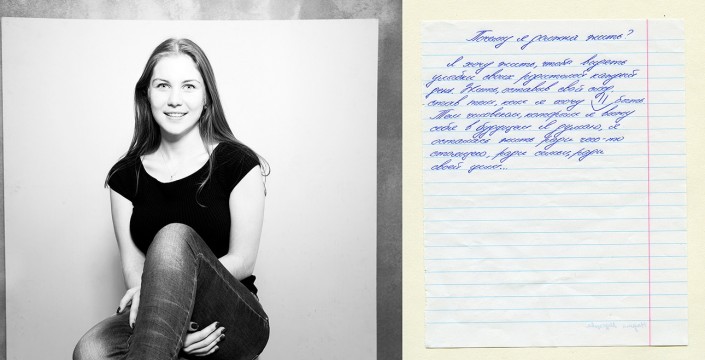 Почему я должна жить?
Я хочу жить, чтобы видеть
улыбки своих родителей каждый
день. Жить, оставив свой след,
став тем, кем я хочу быть.
Тем человеком, которым я вижу
себя в будущем. Я думаю, я
осталась жить ради чего-то
стоящего, ради семьи, ради
своей